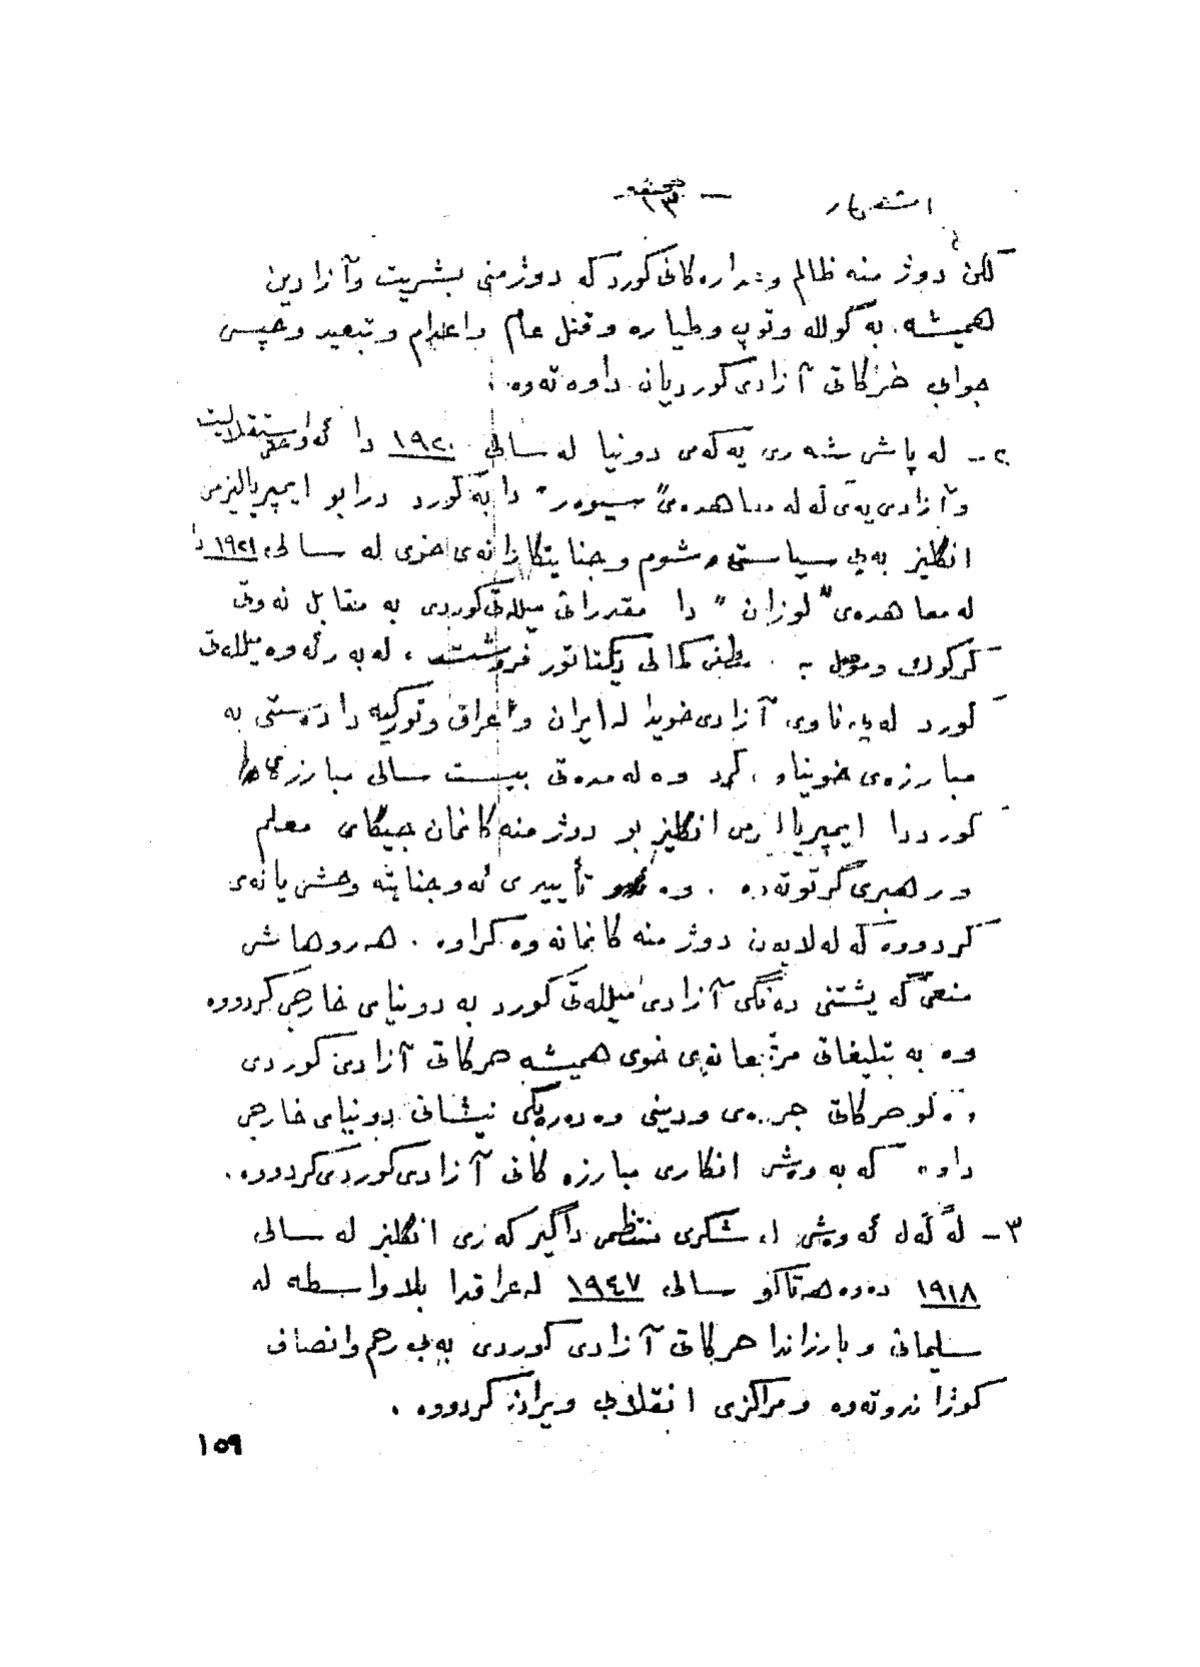 صحیفه
— ١٣ —
لکن دوژمنه ظالم و غداره کانی کورد که دوژمنی بشریت وآزادین
همیشه به گولله وتوپ وطیاره وقتل عام واعدام وتبعید وحپسی
جوابی حرکاتی آزادی کوردیان داوه ته وه.
٢- له پاش شه ری یه که می دونیا له سالی ١٩٢٠ دا ئه و استقلالیت
وآزادی یه ی له معاهده ی "سیوه ر" دا به کورد درابو ایمپریالیزمی
انگلیز به بی سیاستی شوم وجنایتکارانه ی خوی له سالی ١٩٢١ دا
له معاهده ی "لوزان" دا مقدراتی میلله تی کوردی به مقابل نه وتی
کرکوك وموصل به مصطفی کمالی دیکتاتور فروشت، له به ر ئه وه میلله تی
کورد له پی ناوی آزادی خویدا له ایران وعراق وتورکیه دا ده ستی به
مبارزه ی خویناوی کرد وه له مده تی بیست سالی مبارزه ی
کورددا ایمپریالیزمی انگلیز بو دوژمنه کانمان جیگای معلم
ورهبری گرتوته وه. وه تأییدی ئه وجنایته وحشی یانه ی
کردووه که له لایه ن دوژمنه کانمانه وه کراوه. هه روهاش
منعی گه یشتنی ده نگی آزادی میلله تی کورد به دونیای خارجی کردووه
وه به تبلیغاتی مرتجعانه ی خوی همیشه حرکاتی آزادی کوردی
وه کو حرکاتی جرده ی ودینی وه ده ره به گی نیشانی دونیای خارجی
داوه که به وه ش انکاری مبارزه کانی آزادی کوردی کردووه.
٣- له گه ل ئه وه ش له شکری منتظمی داگیرکه ری انگلیز له سالی
١٩١٨ ه وه هه تاکو سالی ١٩٤٧ له عراقدا بلا واسطه له
سلیمانی و بارزاندا حرکاتی آزادی کوردی به بی رحم وانصاف
کوژاندوته وه ومراکزی انقلابی ویران کردووه.
١٥٩